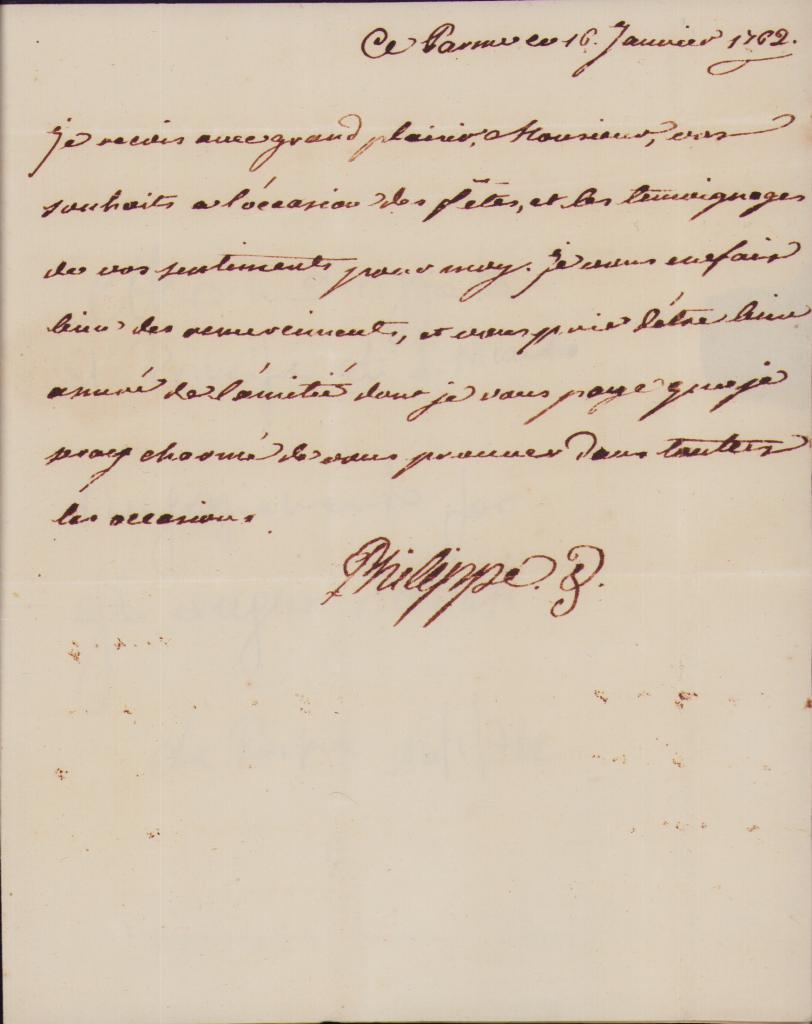 Ce Parme le 16. Janvier 1762.
Je recois avec grand plaisir, Monsieur, vos
souhaits a l'occasion des fêtes, et les temoignages
de vos sentiments pour moy. Je vous en fais
bien des remerciments, et vous prie d'étre bien
assuré de l'amitié dont je vous paye que je
seray charmé de vous prouver dans touttes
les occasions.
Philippe.